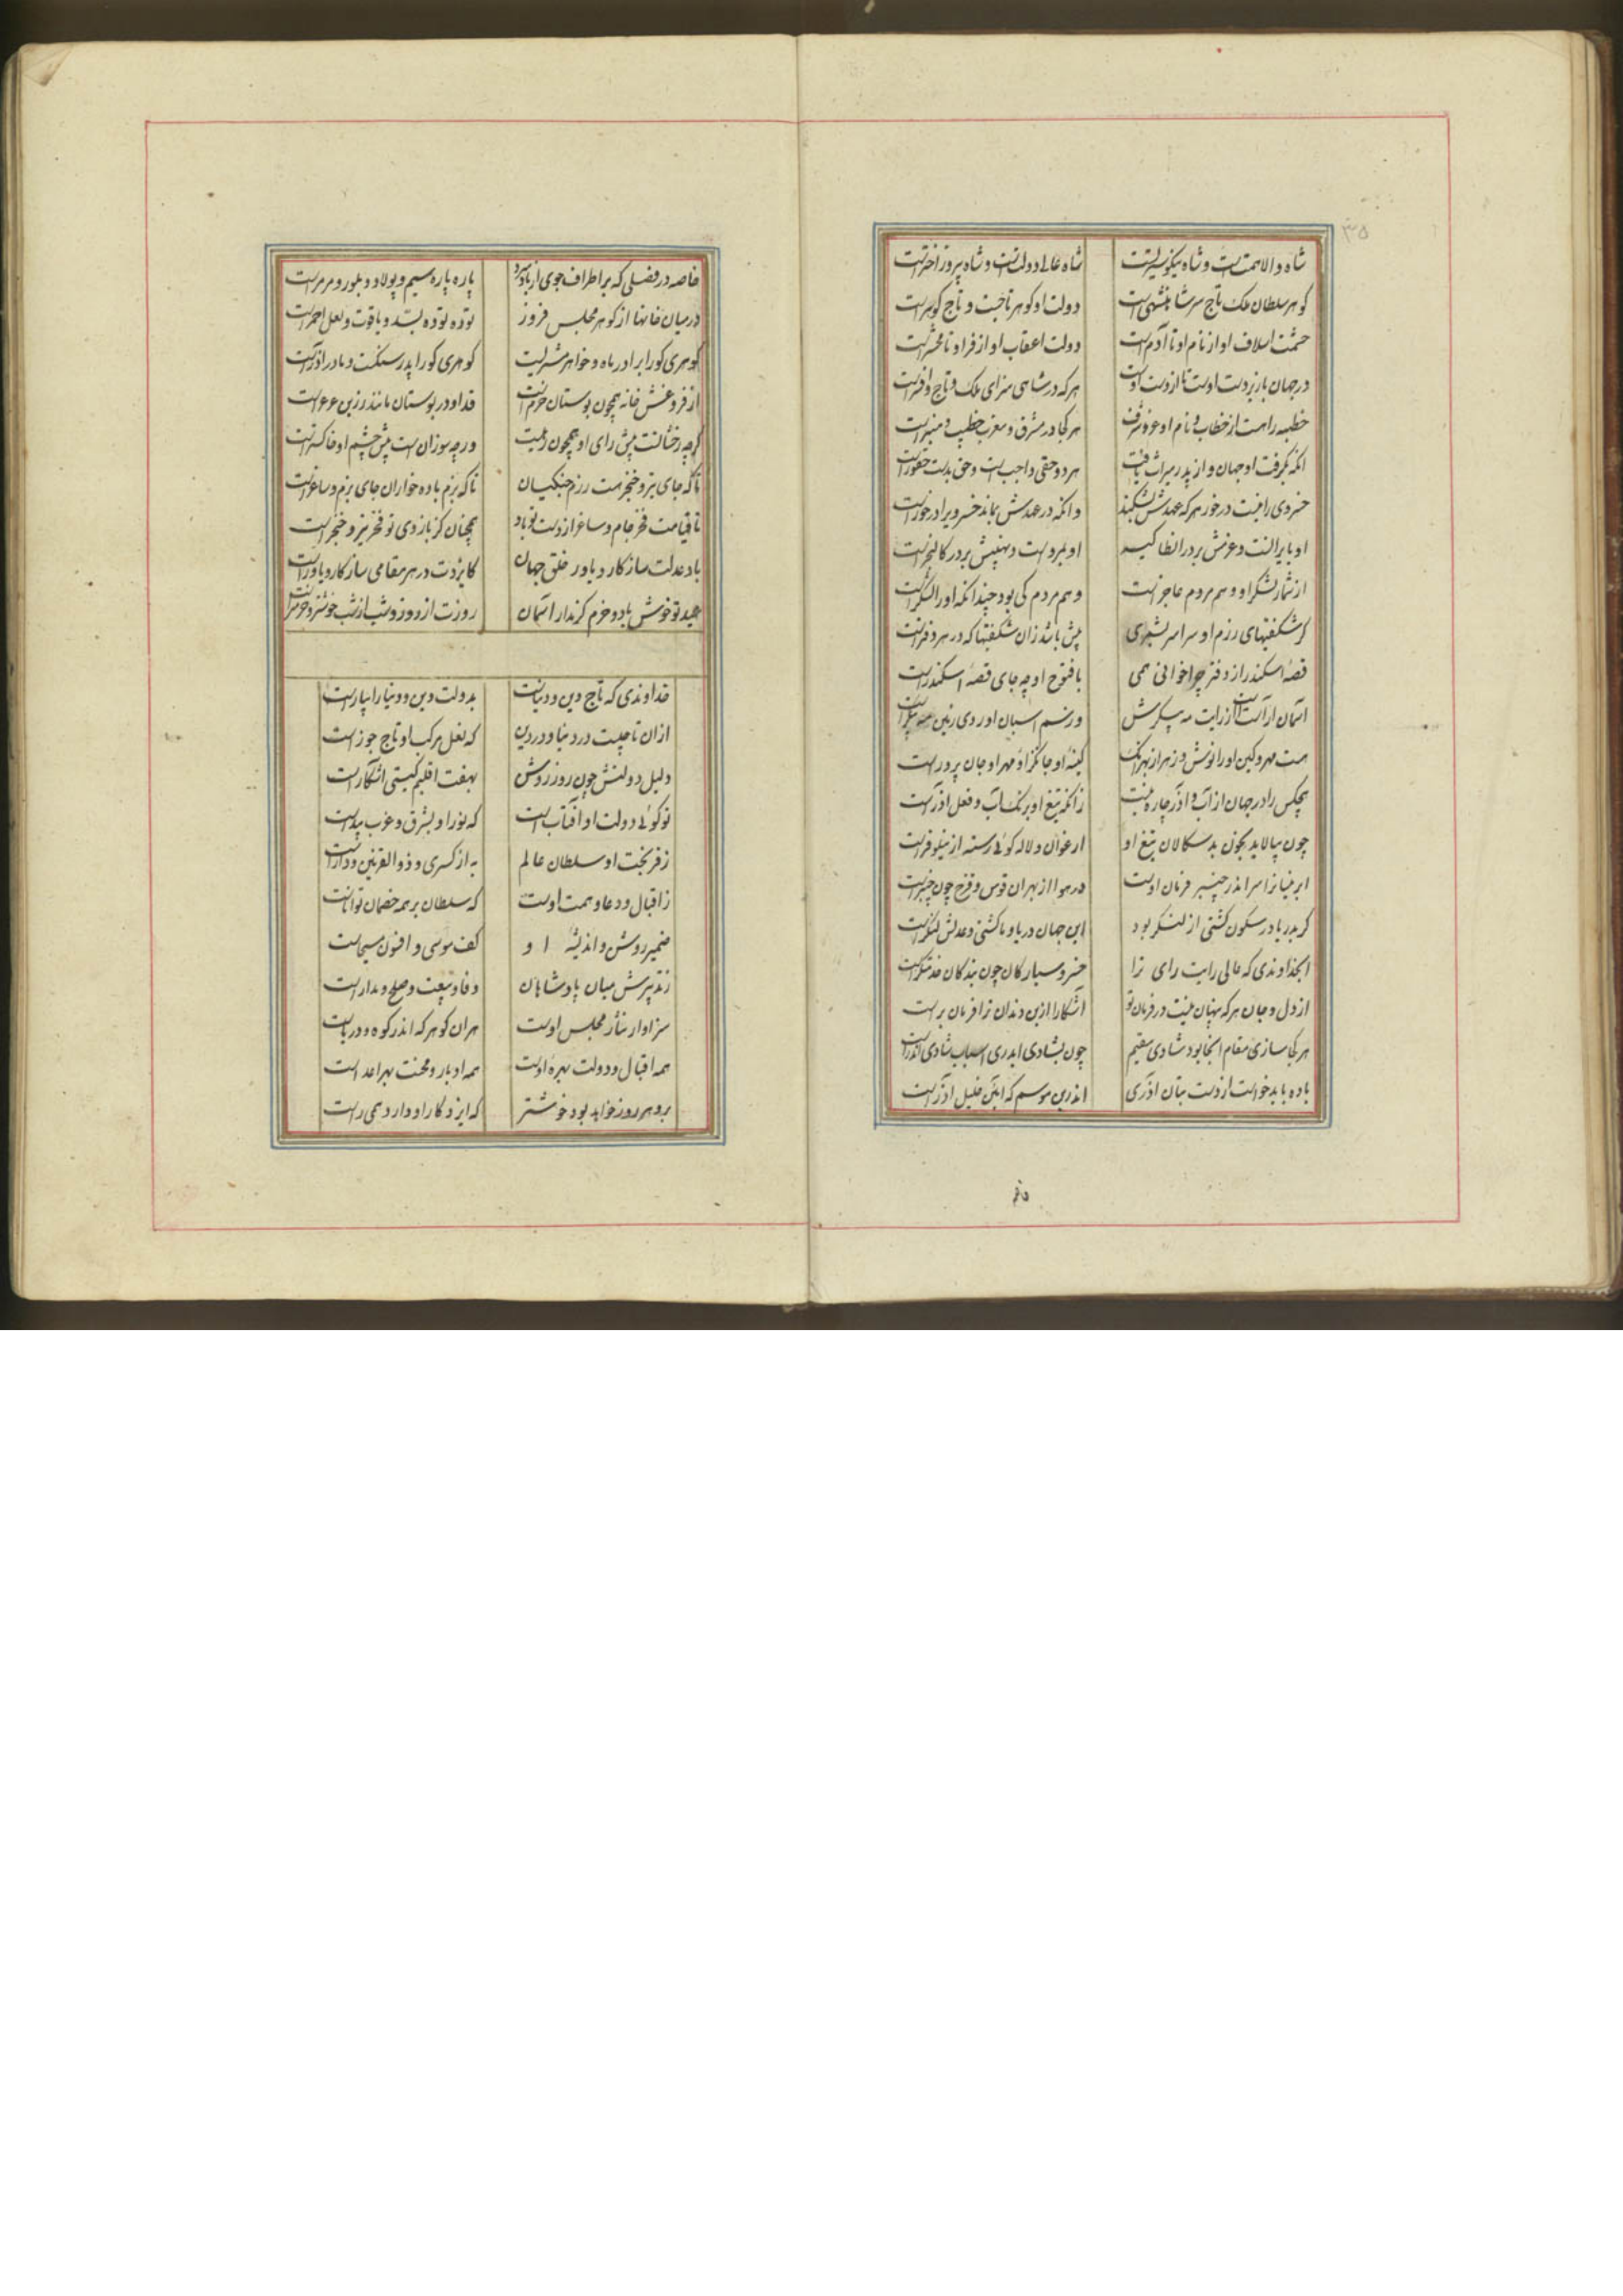 ۳۵
شاه والاهمتست و شاه نیکو سیرتست شاه عالی دولتست و شاه پیروز اخترست
گوهر سلطان ملک تاج سر شاهنشهی است دولت او گوهر تاجیست و تاج گوهرست
حشمت اسلاف او از نام او تا آدم است دولت اعقاب او از فر او تا محشرست
در جهان باز بردست اوست تا از دست اوست هرکه در شاهی سزای ملک و تاج و افسرست
خطبه را هست از خطاب و نام او عز و شرف هر کجا در مشرق و مغرب خطیب و منبرست
انکه بگرفت او جهان و از پدر میراث یافت هر دو حقی واجب است و حق بدست حقورست
خسروی را نیست درخور هرکه عهدش بشکند وانکه در عهدش بماند خسروی را درخورست
او بایرانست و عزمش بر در انطاکیه او بمروست و نهیبش بر در کالنجرست
از شمار لشکر او وهم مردم عاجزست وهم مردم کی بود چندانکه او را لشکرست
گر شکفتیهای رزم او سراسر بشمری بیش باشد زان شکفتیها که در هر دفترست
قصهٔ اسکندر از دفتر چرا خوانی همی با فتوح او چه جای قصهٔ اسکندرست
آسمان آراست از رایت مه پیکرش وز سم اسبان او روی زمین مه پیکرست
هست مهر و کین او را نوش و زهر از بهر انک کینه او جانگزا و مهر او جان پرورست
هیچکس را در جهان از آب و آذر چاره نیست زانکه تیغ او برنک آب و فعل آذرست
چون بپالاید بخون بدسکالان تیغ او ارغوان و لاله گوئی رسته از نیلوفرست
ابر نیسانرا سر اندر چنبر فرمان اوست در هوا از بهر ان قوس و قزح چون چنبرست
گر بدریا در سکون کشتی از لنگر بود این جهان دریا و ما کشتی و عدلش لنگرست
ایخداوندی که عالی رایت رای ترا خسرو سیارکان چون بندکان خدمتگرست
از دل و جان هرکه پنهان نیست در فرمان تو آشکارا از بن دندان ترا فرمان برست
هر کجا سازی مقام انجا بود شادی مقیم چون بشادی ایدری اسباب شادی ایدرست
باده باید خواست از دست بتان آذری اندرین موسم که آئین خلیل آذرست
خاصه در فصلی که بر اطراف جوی از باد سرد پاره پاره سیم و پولاد و بلور و مرمرست
در میان خانها از گوهر مجلس فروز توده توده بسّد و یاقوت و لعل احمرست
گوهری کورا برادر ماه و خواهر مشتریست گوهری کورا پدر سنگست و مادر آذرست
از فروغش خانه همچون بوستان خرم است قد او در بوستان مانند زرین عرعرست
گرچه رخشانست پیش رای او همچون دمیست ورچه سوزان است پیش خشم او خاکسترست
تا که جای تیر و خنجر هست رزم جنگیان تا که بزم باده خواران جای بزم و ساغرست
تا قیامت فخر جام و ساغر از دست تو باد همچنان کز بازوی تو فخر تیر و خنجرست
باد عدلت سازکار و یاور خلق جهان کایزدت در هر مقامی سازکار و یاورست
عید تو خوش باد و خرم کز مدار آسمان روزت از روز و شب از شب خوشتر و خرم ترست
خداوندی که تاج دین و دنیاست بدولت دین و دنیا را بیاراست
ازان تاجیست در دنیا و در دین که نعل مرکب او تاج جوزاست
دلیل دولتش چون روز روشن بهفت اقلیم گیتی آشکاراست
تو گوئی دولت او آفتاب است که نور او بشرق و غرب پیداست
ز فر بخت او سلطان عالم به از کسری و ذوالقرنین و داراست
ز اقبال و دعا و همت اوست که سلطان بر همه خصمان تواناست
ضمیر روشن و اندیشه او کف موسی و افسون مسیحاست
ز تدبیرش میان پادشاهان وفا و بیعت و صلح و مداراست
سزاوار نثار مجلس اوست هران گوهر که اندر کوه و دریاست
همه اقبال و دولت بهره اوست همه ادبار و محنت بهر اعداست
برو هر روز خواهد بود خوشتر که ایزد کار او دارد همی راست